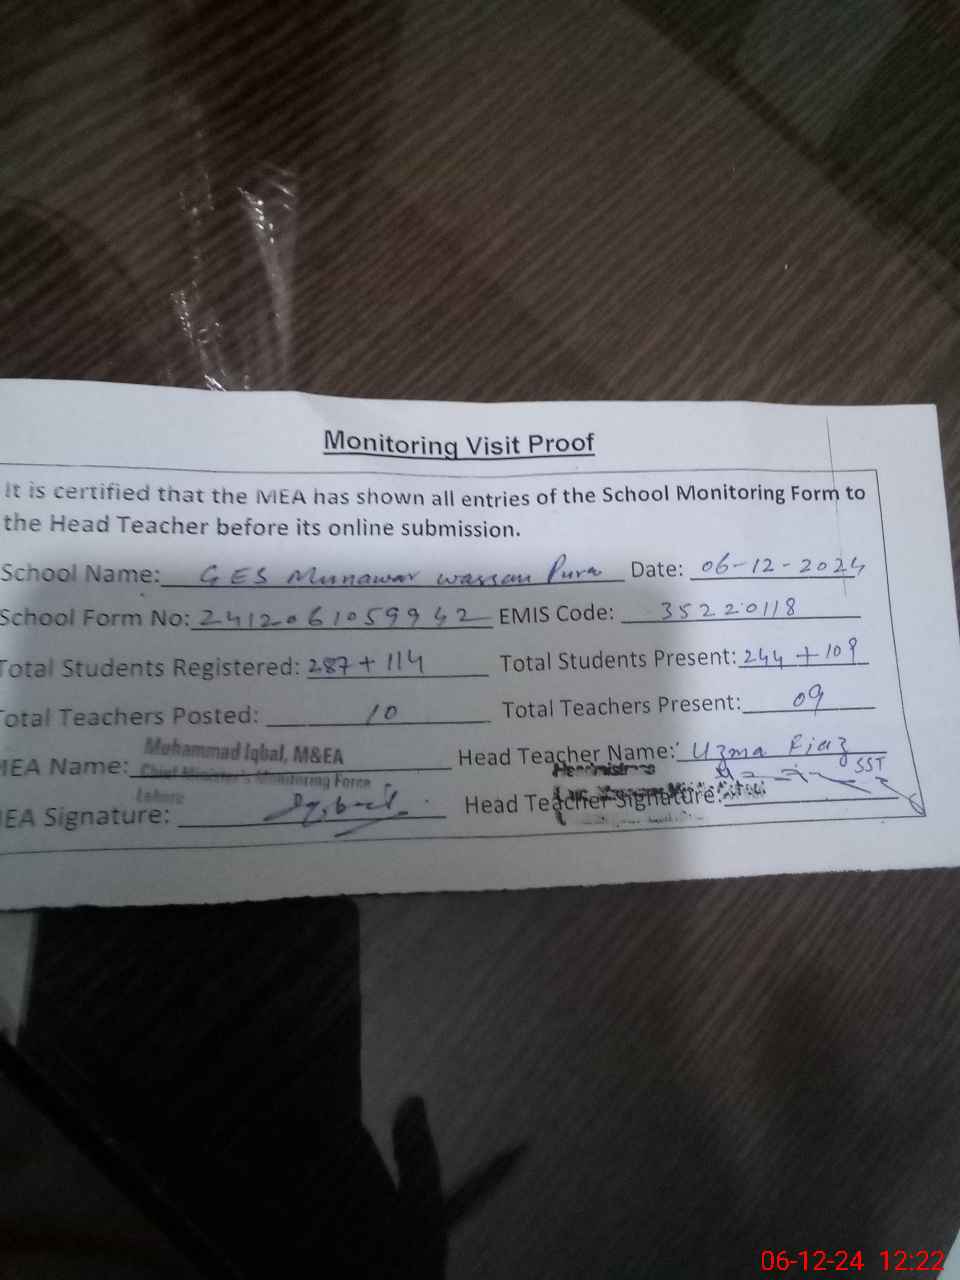 Monitoring Visit Proof
It is certified that the MEA has shown all entries of the School Monitoring Form to
the Head Teacher before its online submission.
School Name: GES Munawar wassan Pura Date: 06-12-2024
School Form No: 2412061059942 EMIS Code: 35220118
Total Students Registered: 287 + 114 Total Students Present: 244 + 109
Total Teachers Posted: 10 Total Teachers Present: 09
MEA Name: Muhammad Iqbal, M&EA Head Teacher Name: Uzma Riaz
Chief Minister's Monitoring Force Headmistress SST
Lahore
MEA Signature: Head Teacher Signature:
06-12-24 12:22